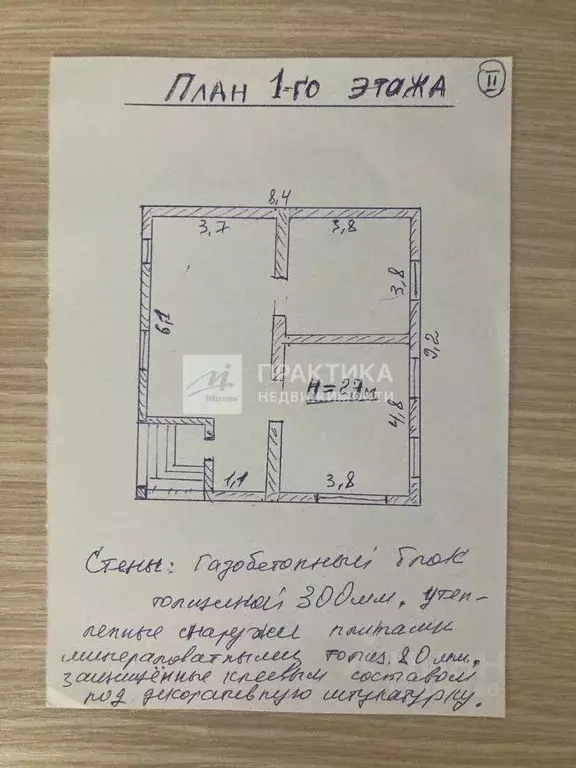 План 1-го этажа
II
8,4
3,7
3,8
3,8
6,1
9,2
ПРАКТИКА
НЕДВИЖИМОСТИ
Миэль
H=2,7м
4,8
3,8
1,1
Стены: Газобетонный блок
толщиной 300мм, утеп-
ленные снаружи плитами
минераловатными толщ. 80мм,
защищённые клеевым составом
под декоративную штукатурку.